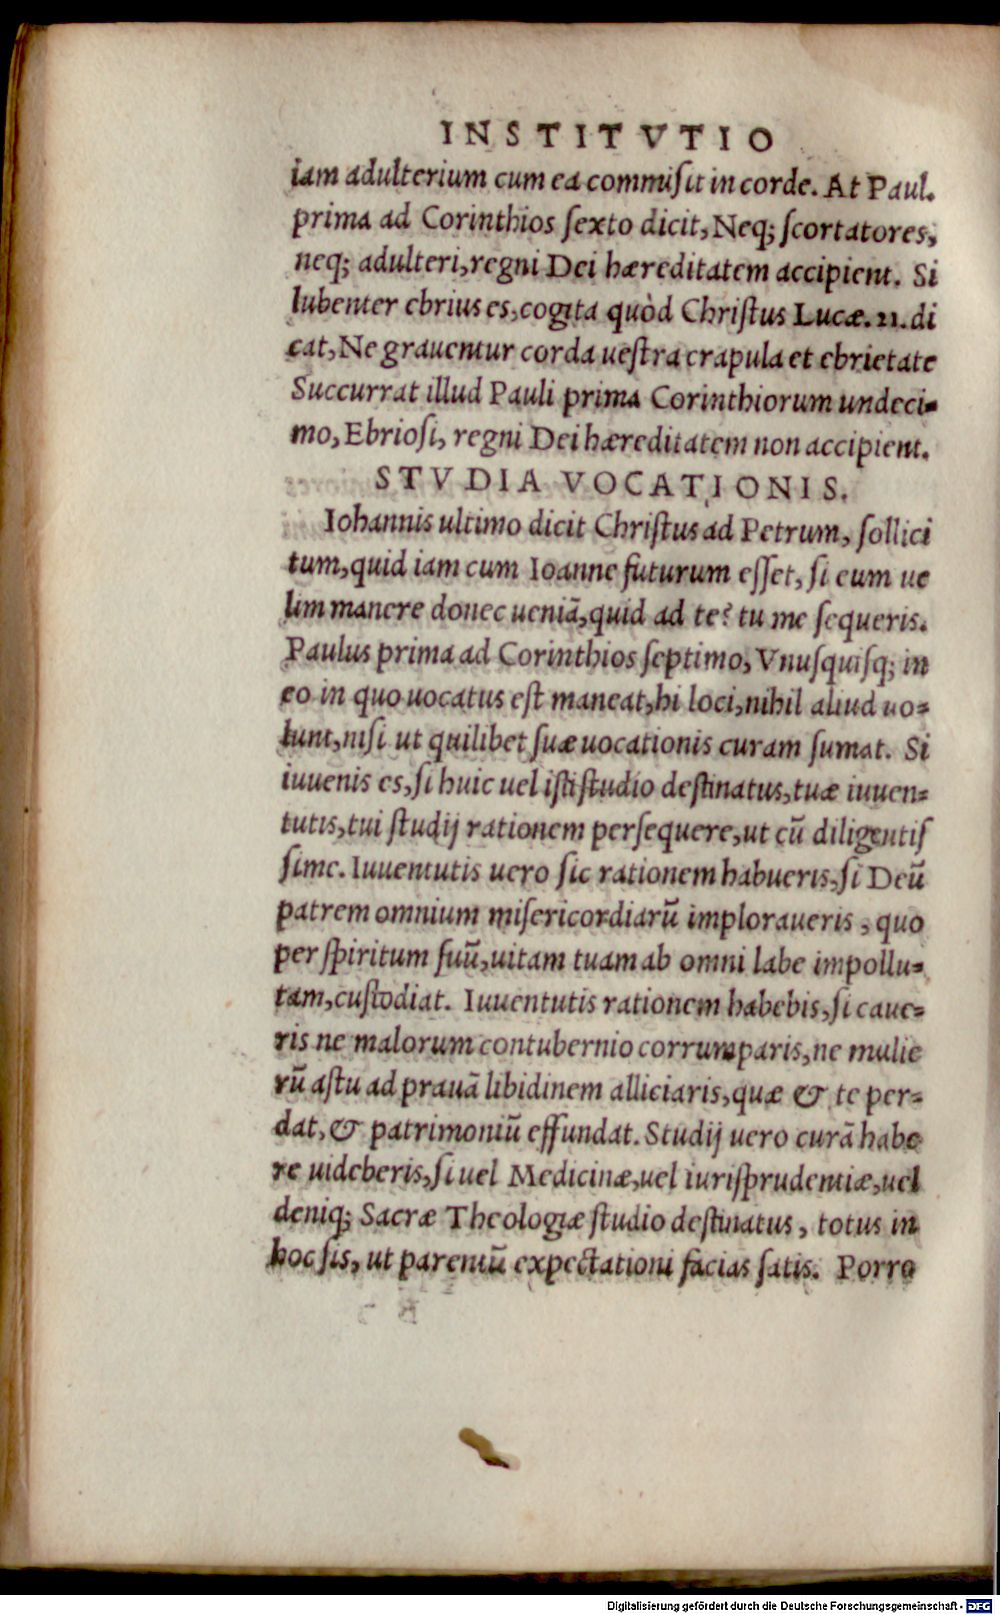 INSTITVTIO
iam adulterium cum ea commiſit in corde. At Paul.
prima ad Corinthios ſexto dicit, Neq; ſcortatores,
neq; adulteri, regni Dei hæreditatem accipient. Si
lubenter ebrius es, cogita quòd Chriſtus Lucæ. 21. di
cat, Ne grauentur corda ueſtra crapula et ebrietate
Succurrat illud Pauli prima Corinthiorum undeci=
mo, Ebrioſi, regni Dei hæreditatem non accipient.
STVDIA VOCATIONIS.
Iohannis ultimo dicit Chriſtus ad Petrum, ſollici
tum, quid iam cum Ioanne futurum eſſet, ſi eum ue
lim manere donec ueniā, quid ad te? tu me ſequeris.
Paulus prima ad Corinthios ſeptimo, Vnuſquiſq; in
eo in quo uocatus eſt maneat, hi loci, nihil aliud uo=
lunt, niſi ut quilibet ſuæ uocationis curam ſumat. Si
iuuenis es, ſi huic uel iſti ſtudio deſtinatus, tuæ iuuen=
tutis, tui ſtudij rationem perſequere, ut cū diligentiſ
ſime. Iuuentutis uero ſic rationem habueris, ſi Deū
patrem omnium miſericordiarū imploraueris, quo
per ſpiritum ſuū, uitam tuam ab omni labe impollu=
tam, cuſtodiat. Iuuentutis rationem habebis, ſi caue=
ris ne malorum contubernio corrumparis, ne mulie
rū aſtu ad prauā libidinem alliciaris, quæ & te per=
dat, & patrimoniū effundat. Studij uero curā habe
re uideberis, ſi uel Medicinæ, uel iuriſprudentiæ, uel
deniq; Sacræ Theologiæ ſtudio deſtinatus, totus in
hoc ſis, ut parentū expectationi facias ſatis. Porro
Digitalisierung gefördert durch die Deutsche Forschungsgemeinschaft - DFG